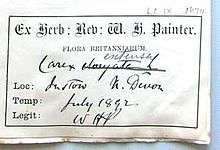 Ex Herb: Rev: W. H. Painter.
FLORA BRITANNIARUM.
extensa
Carex elongata L
Loc: Instow N. Devon
Temp: July 1892
Legit: WHP